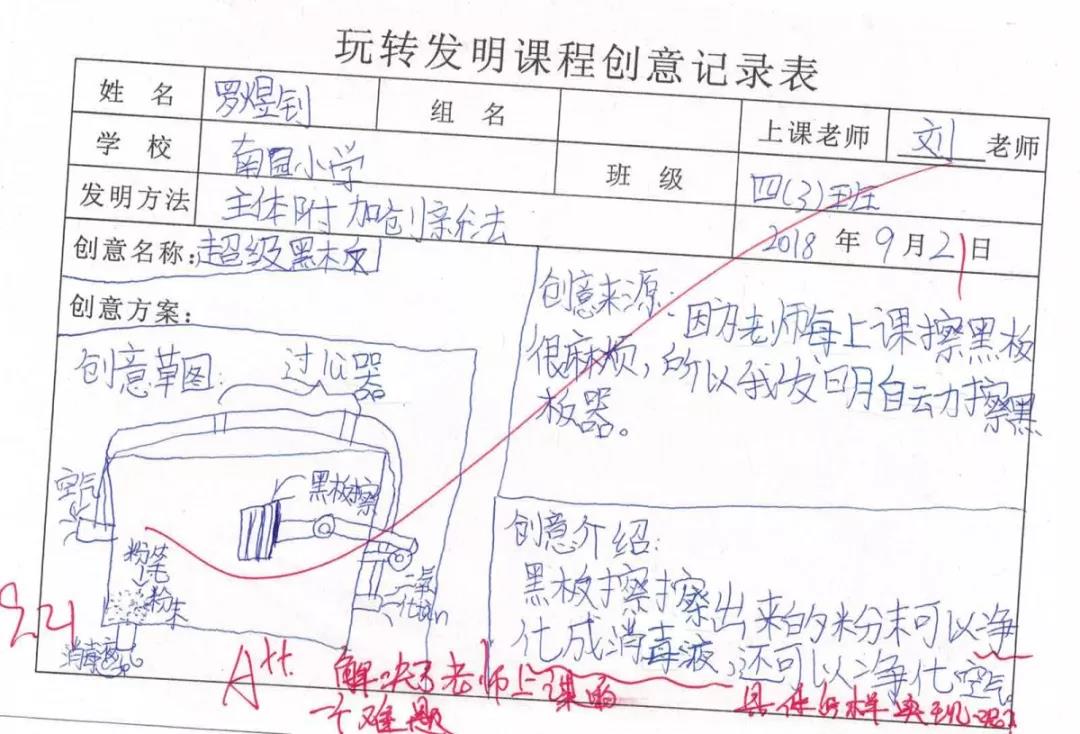 玩转发明课程创意记录表
姓 名 罗煜钊 组 名 上课老师 刘 老师
学 校 南园小学 班 级 四(3)班
发明方法 主体附加创新法 2018 年 9 月 21 日
创意名称:超级黑板刷
创意方案:
创意草图:
过沁器
空气
黑板擦
粉笔
粉末
消毒液
二氧
化碳
创意来源:因为老师每上课擦黑板
很麻烦,所以我发明自动擦黑
板器。
创意介绍:
黑板擦擦出来的粉末可以净
化成消毒液,还可以净化空气。
9.21
A++
解决了老师上课的
一个难题
具体怎样实现呢?